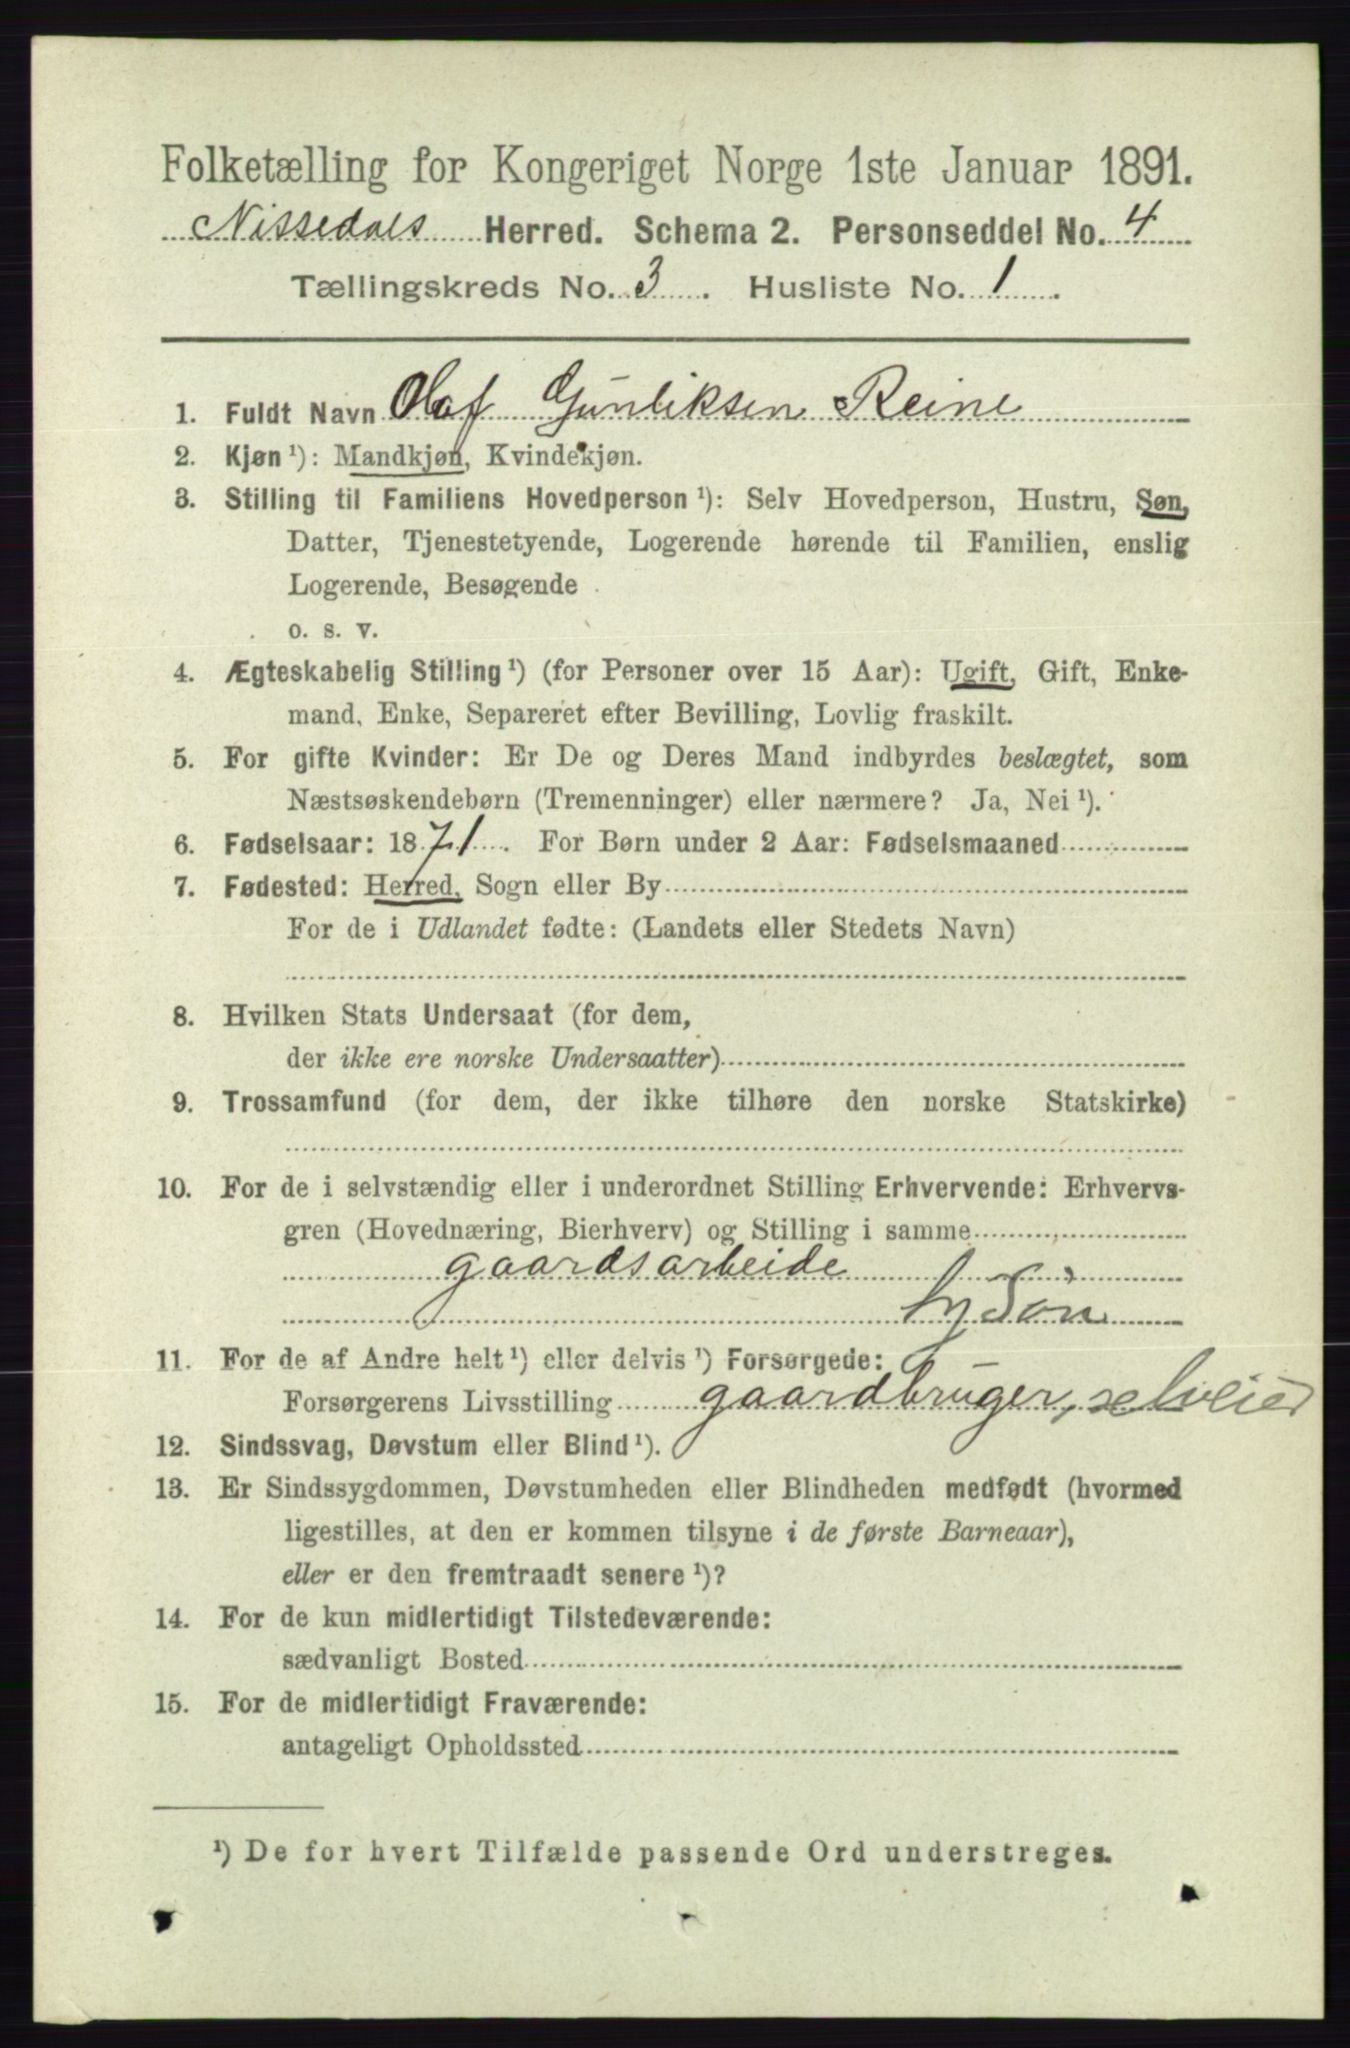 Folketælling for Kongeriget Norge 1ste Januar 1891.
Nissedals Herred. Schema 2. Personseddel No. 4
Tællingskreds No. 3. Husliste No. 1.
1. Fuldt Navn Olaf Gunliksen Reine
2. Kjøn ¹): Mandkjøn, Kvindekjøn.
3. Stilling til Familiens Hovedperson ¹): Selv Hovedperson, Hustru, Søn,
Datter, Tjenestetyende, Logerende hørende til Familien, enslig
Logerende, Besøgende
o. s. v.
4. Ægteskabelig Stilling ¹) (for Personer over 15 Aar): Ugift, Gift, Enke-
mand, Enke, Separeret efter Bevilling, Lovlig fraskilt.
5. For gifte Kvinder: Er De og Deres Mand indbyrdes beslægtet, som
Næstsøskendebørn (Tremenninger) eller nærmere? Ja, Nei ¹).
6. Fødselsaar: 1871. For Børn under 2 Aar: Fødselsmaaned
7. Fødested: Herred, Sogn eller By
For de i Udlandet fødte: (Landets eller Stedets Navn)
8. Hvilken Stats Undersaat (for dem,
der ikke ere norske Undersaatter)
9. Trossamfund (for dem, der ikke tilhøre den norske Statskirke)
10. For de i selvstændig eller i underordnet Stilling Erhvervende: Erhvervs-
gren (Hovednæring, Bierhverv) og Stilling i samme
gaardsarbeide
Søn
11. For de af Andre helt ¹) eller delvis ¹) Forsørgede:
Forsørgerens Livsstilling gaardbruger, selveier
12. Sindssvag, Døvstum eller Blind ¹).
13. Er Sindssygdommen, Døvstumheden eller Blindheden medfødt (hvormed
ligestilles, at den er kommen tilsyne i de første Barneaar),
eller er den fremtraadt senere ¹)?
14. For de kun midlertidigt Tilstedeværende:
sædvanligt Bosted
15. For de midlertidigt Fraværende:
antageligt Opholdssted
¹) De for hvert Tilfælde passende Ord understreges.